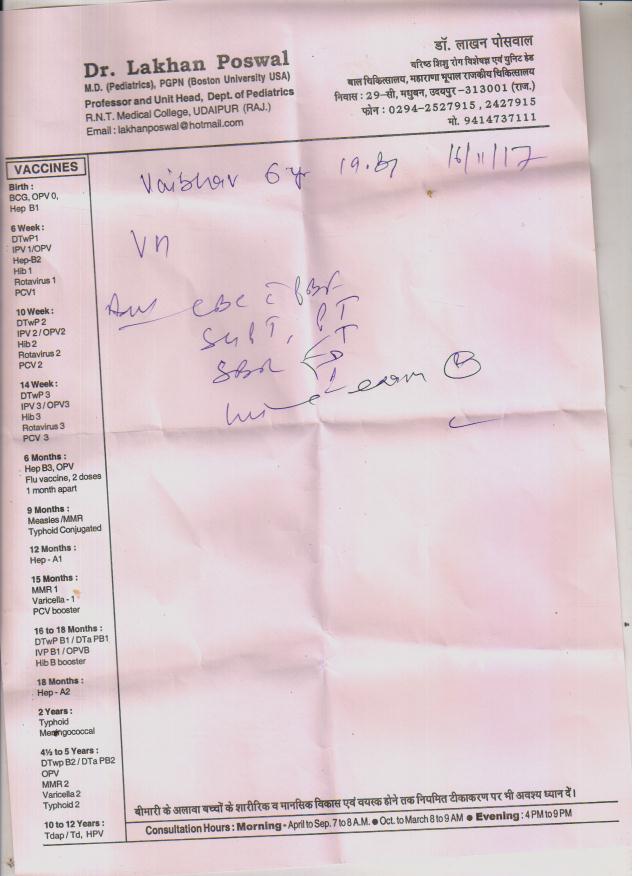 Dr. Lakhan Poswal
M.D. (Pediatrics), PGPN (Boston University USA)
Professor and Unit Head, Dept. of Pediatrics
R.N.T. Medical College, UDAIPUR (RAJ.)
Email : lakhanposwal@hotmail.com
डॉ. लाखन पोसवाल
वरिष्ठ शिशु रोग विशेषज्ञ एवं युनिट हेड
बाल चिकित्सालय, महाराणा भूपाल राजकीय चिकित्सालय
निवास : 29-सी, मधुबन, उदयपुर -313001 (राज.)
फोन : 0294-2527915, 2427915
मो. 9414737111
Vaibhav 6 yr 16/11/17
CBC
SGPT, PT
VACCINES
Birth :
BCG, OPV 0,
Hep B1
6 Week :
DTwP1
IPV 1/OPV
Hep-B2
Hib 1
Rotavirus 1
PCV1
10 Week :
DTwP 2
IPV 2 / OPV2
Hib 2
Rotavirus 2
PCV 2
14 Week :
DTwP 3
IPV 3 / OPV3
Hib 3
Rotavirus 3
PCV 3
6 Months :
Hep B3, OPV
Flu vaccine, 2 doses
1 month apart
9 Months :
Measles /MMR
Typhoid Conjugated
12 Months :
Hep - A1
15 Months :
MMR 1
Varicella - 1
PCV booster
16 to 18 Months :
DTwP B1 / DTa PB1
IVP B1 / OPVB
Hib B booster
18 Months :
Hep - A2
2 Years :
Typhoid
Meningococcal
4½ to 5 Years :
DTwp B2 / DTa PB2
OPV
MMR 2
Varicella 2
Typhoid 2
10 to 12 Years :
Tdap / Td, HPV
बीमारी के अलावा बच्चों के शारीरिक व मानसिक विकास एवं वयस्क होने तक नियमित टीकाकरण पर भी अवश्य ध्यान दें।
Consultation Hours : Morning - April to Sep. 7 to 8 A.M. ● Oct. to March 8 to 9 AM ● Evening : 4 PM to 9 PM